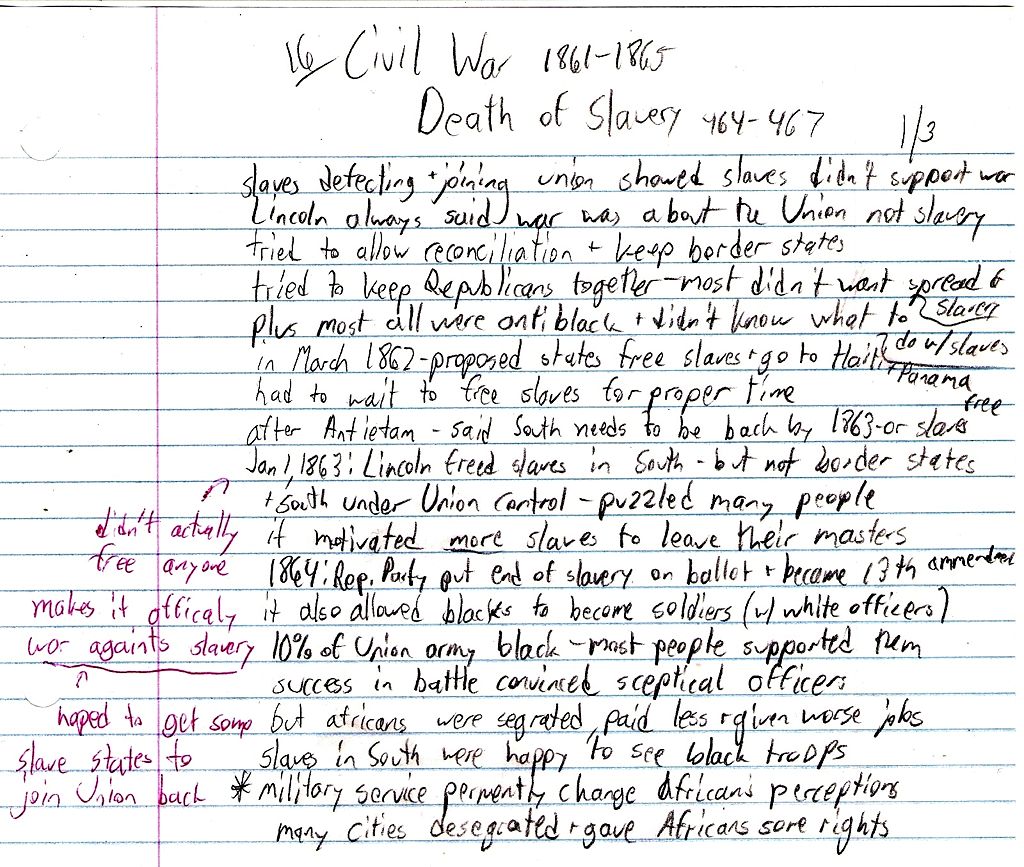 16 Civil War 1861-1865
Death of Slavery 464-467
1/3
slaves defecting + joining union showed slaves didn't support war
Lincoln always said war was about the Union not slavery
tried to allow reconciliation + keep border states
tried to keep Republicans together - most didn't want spread of slavery
plus most all were anti black + didn't know what to do w/ slaves
in March 1862 - proposed states free slaves + go to Haiti + Panama
had to wait to free slaves for proper time
after Antietam - said South needs to be back by 1863 - or slaves free
Jan 1, 1863: Lincoln freed slaves in South - but not border states
+ South under Union control - puzzled many people
didn't actually free anyone
it motivated more slaves to leave their masters
1864: Rep. Party put end of slavery on ballot + become 13th ammendment
makes it officaly war againts slavery
it also allowed blacks to become soldiers (w/ white officers)
10% of Union army black - most people supported them
success in battle convinced sceptical officers
hoped to get some slave states to join Union back
but africans were segrated, paid less + given worse jobs
slaves in South were happy to see black troops
* military service permently change African's perceptions
many cities desegrated + gave Africans sore rights